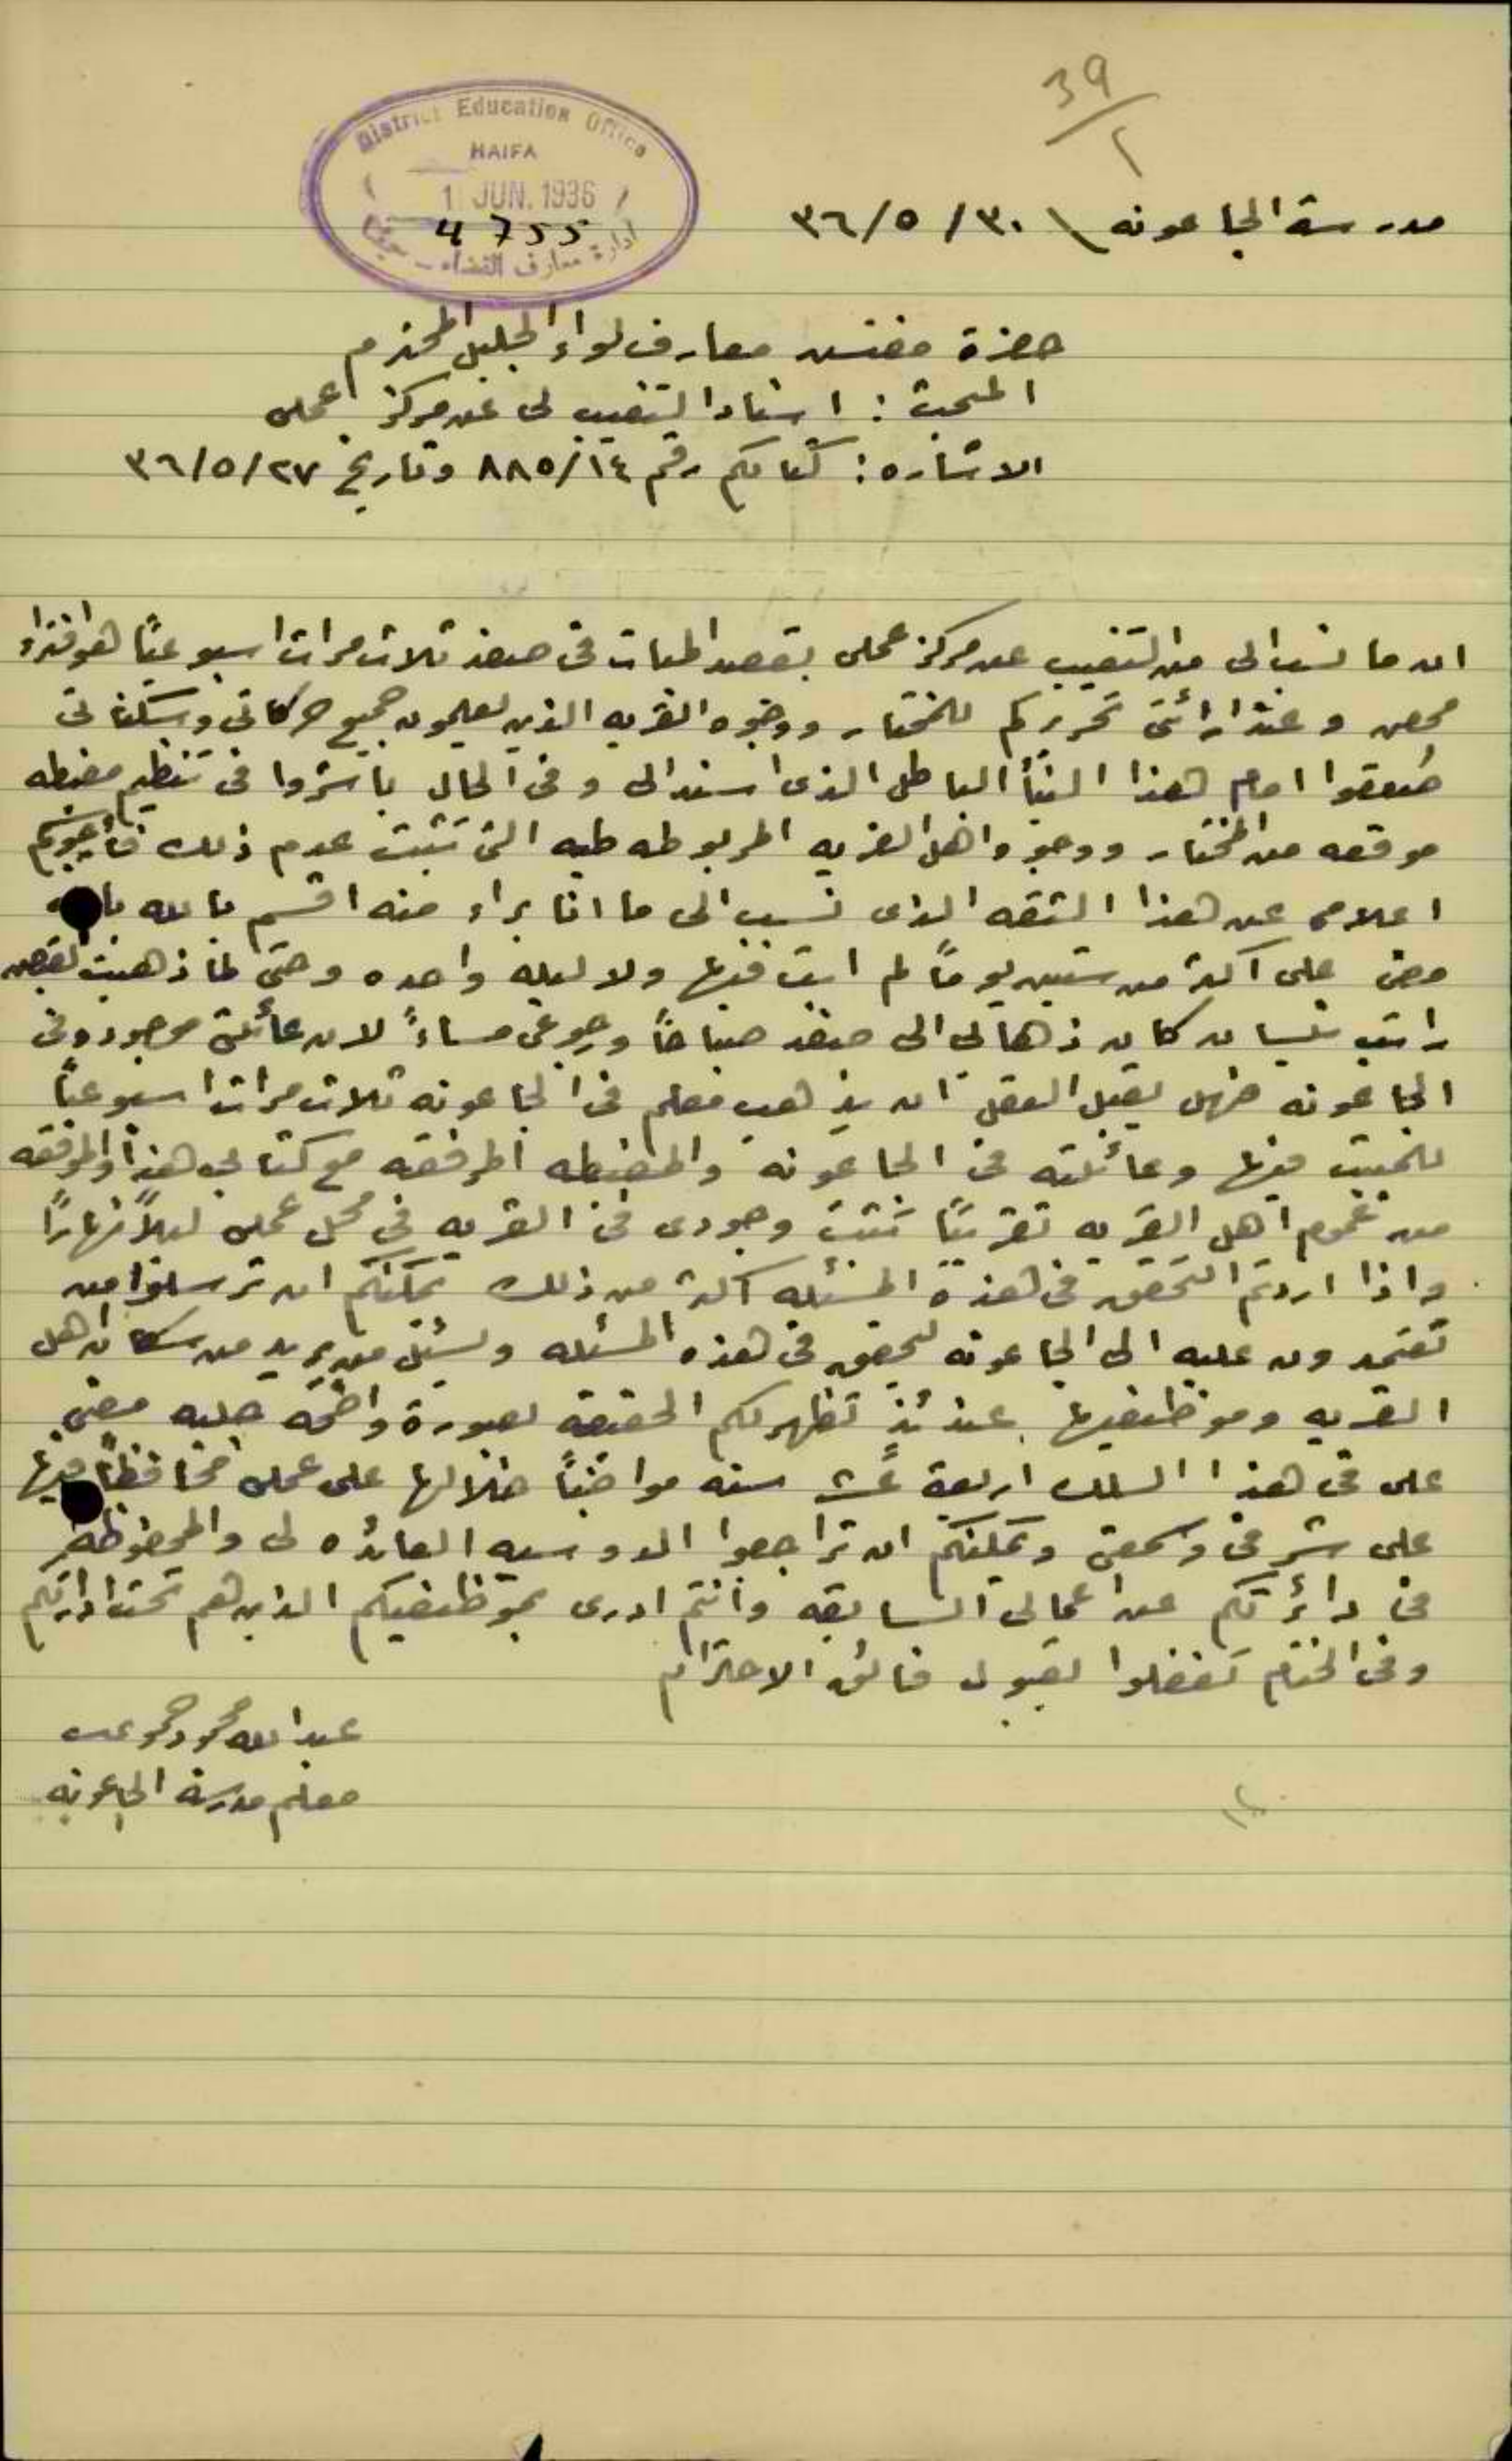 39/2
District Education Office
HAIFA
1 JUN. 1936
4755
ادارة معارف القضاء - حيفا
مدرسة الجاعونه \ ٣٠/ ٥/ ٣٦
حضرة مفتش معارف لواء الجليل المحترم
المبحث : اسناد التغيب لى عن مركز عملى
الاشاره : كتابكم رقم ٨٨٥/١٤ وتاريخ ٣٦/٥/٢٧
ان ما نسب الى من التغيب عن مركز عملى بقصد المبات فى صفد ثلاث مرات اسبوعيًا هو افتراء
محض و عند ارائتى تحريركم للمختار ووجوه القريه الذين يعلمون جميع حركاتى وسكناتى
صعقوا امام هذا النبأ الباطل الذى اسند الى وفى الحال باشروا فى تنظيم مضبطه
موقعه من المختار ووجوه واهل القريه المربوطه طيه التى تثبت عدم ذلك
اعلامى عن هذا الثقه الذى نسب الى ما انا براء منه اقسم بالله بانه
مضى على اكثر من ستين يومًا لم ابت فيها ولا ليله واحده وحتى لما ذهبت لقبض
راتب نيسان كان ذهابى الى صفد صباحًا ورجوعى مساءً لان عائلتى موجوده فى
الجاعونه فهل يقبل العقل ان يذهب معلم فى الجاعونه ثلاث مرات اسبوعيًا
للمبيت فيها وعائلته فى الجاعونه والمضبطه المرفقه مع كتابى هذا والموقعه
من عموم اهل القريه تقريبًا تثبت وجودى فى القريه فى محل عملى ليلاً نهارًا
واذا اردتم التحقق فى هذه المسئله اكثر من ذلك يمكنكم ان ترسلوا من
تعتمدون عليه الى الجاعونه ليحقق فى هذه المسئله ويسئل من يريد من سكان اهل
القريه وموظفيها عندئذٍ تظهر لكم الحقيقة بصورة واضحه جليه مضى
على فى هذا السلك اربعة عشر سنه مواظبًا خلالها على عملى محافظًا فيها
على شرفى وسمعتى ويمكنكم ان تراجعوا الدوسيه العائده لى والمحفوظه
فى دائرتكم عن اعمالى السابقه وانتم ادرى بموظفيكم الذين هم تحت ادارتكم
وفى الختام تفضلوا بقبول فائق الاحترام
عبدالله محمود
معلم مدرسة الجاعونه